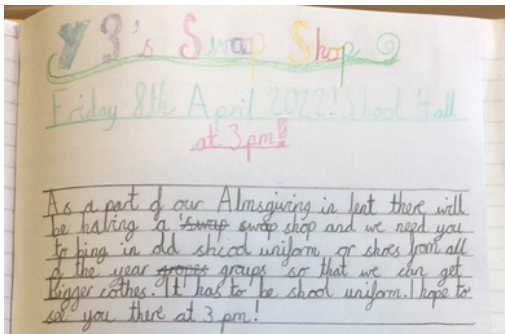 Y3's Swap Shop
Friday 8th April 2022! Shool Hall
at 3pm!
As a part of our Almsgiving in lent there will
be having a 'swap swap shop and we need you
to bing in old shcool uniform or shoes from all
of the year groups groups so that we can get
bigger cothes. It has to be shool uniform. I hope to
see you there at 3 pm!